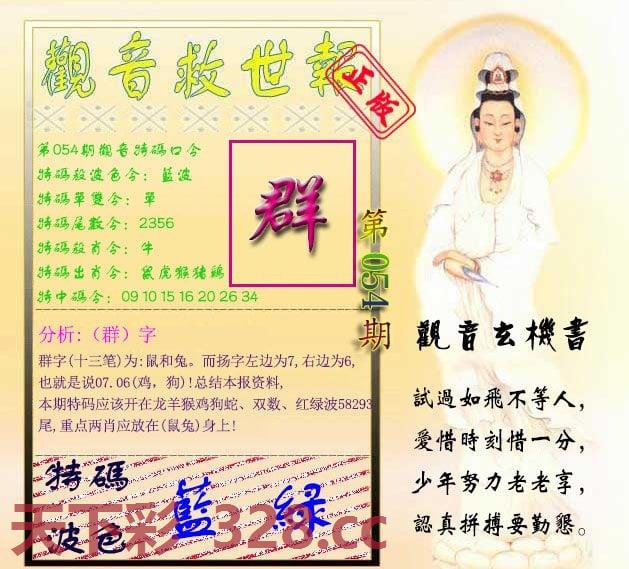 觀音救世報
正版
第054期觀音特碼口令
特碼殺波色令：藍波
特碼單雙令：單
特碼尾數令：2356
特碼殺肖令：牛
特碼出肖令：鼠虎猴猪鷄
特中碼令：09 10 15 16 20 26 34
群
第054期
分析:（群）字
群字(十三笔)为:鼠和兔。而扬字左边为7,右边为6,
也就是说07.06(鸡，狗)!总结本报资料,
本期特码应该开在龙羊猴鸡狗蛇、双数、红绿波58293
尾,重点两肖应放在(鼠兔)身上!
特碼
波色
藍 緑
天下彩 328.cc
觀音玄機書
試過如飛不等人，
愛惜時刻惜一分，
少年努力老老享，
認真拼搏要勤懇。